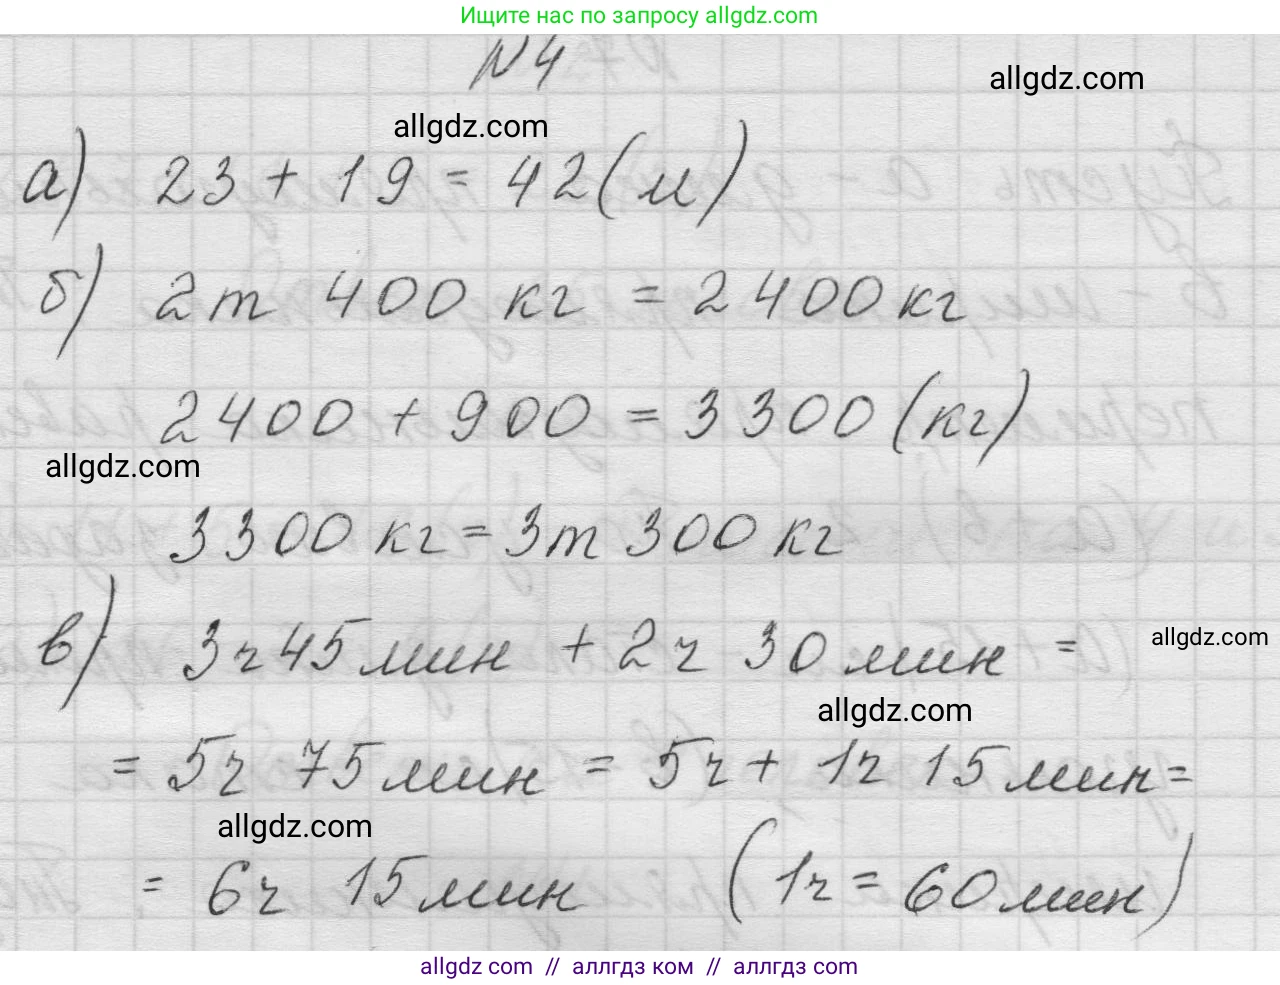 Ищите нас по запросу allgdz.com
N4
allgdz.com
allgdz.com
а) 23 + 19 = 42 (м)
б) 2т 400 кг = 2400 кг
2400 + 900 = 3300 (кг)
allgdz.com
3300 кг = 3т 300 кг
в) 3ч 45 мин + 2ч 30 мин =
allgdz.com
allgdz.com
= 5ч 75 мин = 5ч + 1ч 15 мин =
allgdz.com
= 6ч 15 мин (1ч = 60 мин)
allgdz com // аллгдз ком // аллгдз com